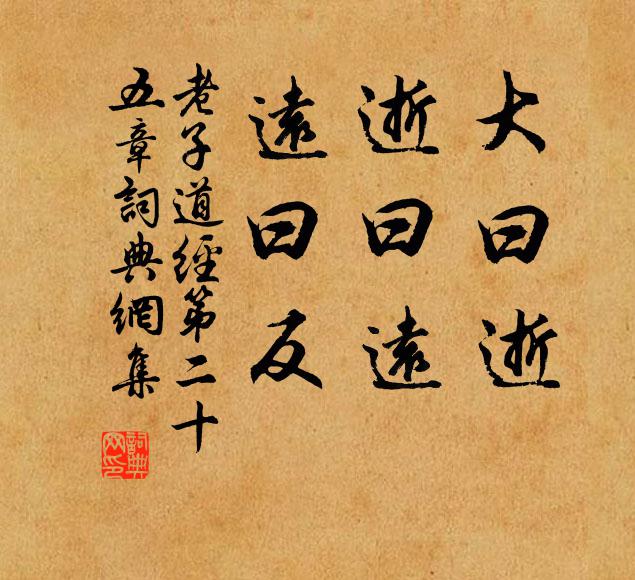 大曰逝
逝曰遠
遠曰反
老子道經第二十
五章詞典網集
詞典
网印